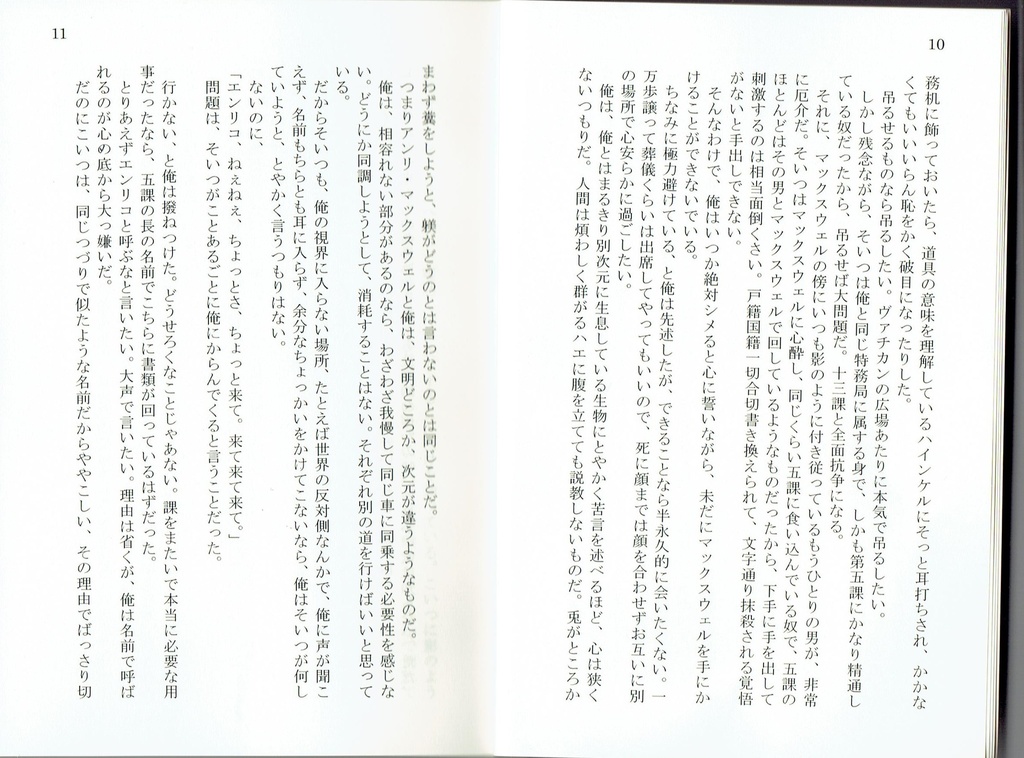 10
務机に飾っておいたら、道具の意味を理解しているハインケルにそっと耳打ちされ、かかな
くてもいいいらん恥をかく破目になったりした。
吊るせるものなら吊るしたい。ヴァチカンの広場あたりに本気で吊るしたい。
しかし残念ながら、そいつは俺と同じ特務局に属する身で、しかも第五課にかなり精通し
ている奴だったから、吊るせば大問題だ。十三課と全面抗争になる。
それに、マックスウェルの傍にいつも影のように付き従っているもうひとりの男が、非常
に厄介だ。そいつはマックスウェルに心酔し、同じくらい五課に食い込んでいる奴で、五課の
ほとんどはその男とマックスウェルで回しているようなものだったから、下手に手を出して
刺激するのは相当面倒くさい。戸籍国籍一切合切書き換えられて、文字通り抹殺される覚悟
がないと手出しできない。
そんなわけで、俺はいつか絶対シメると心に誓いながら、未だにマックスウェルを手にか
けることができないでいる。
ちなみに極力避けている、と俺は先述したが、できることなら半永久的に会いたくない。一
万歩譲って葬儀くらいは出席してやってもいいので、死に顔までは顔を合わせずお互いに別
の場所で心安らかに過ごしたい。
俺は、俺とはまるきり別次元に生息している生物にとやかく苦言を述べるほど、心は狭く
ないつもりだ。人間は煩わしく群がるハエに腹を立てても説教しないものだ。兎がところか
11
まわず糞をしようと、躾がどうのとは言わないのとは同じことだ。
つまりアンリ・マックスウェルと俺は、文明どころか、次元が違うようなものだ。
俺は、相容れない部分があるのなら、わざわざ我慢して同じ車に同乗する必要性を感じな
い。どうにか同調しようとして、消耗することはない。それぞれ別の道を行けばいいと思って
いる。
だからそいつも、俺の視界に入らない場所、たとえば世界の反対側なんかで、俺に声が聞こ
えず、名前もちらとも耳に入らず、余分なちょっかいをかけてこないなら、俺はそいつが何し
ていようと、とやかく言うつもりはない。
ないのに、
「エンリコ、ねえねぇ、ちょっとさ、ちょっと来て。来て来て来て。」
問題は、そいつがことあるごとに俺にからんでくると言うことだった。
行かない、と俺は撥ねつけた。どうせろくなことじゃあない。課をまたいで本当に必要な用
事だったなら、五課の長の名前でこちらに書類が回っているはずだった。
とりあえずエンリコと呼ぶなと言いたい。大声で言いたい。理由は省くが、俺は名前で呼ば
れるのが心の底から大っ嫌いだ。
だのにこいつは、同じつづりで似たような名前だからややこしい、その理由でばっさり切